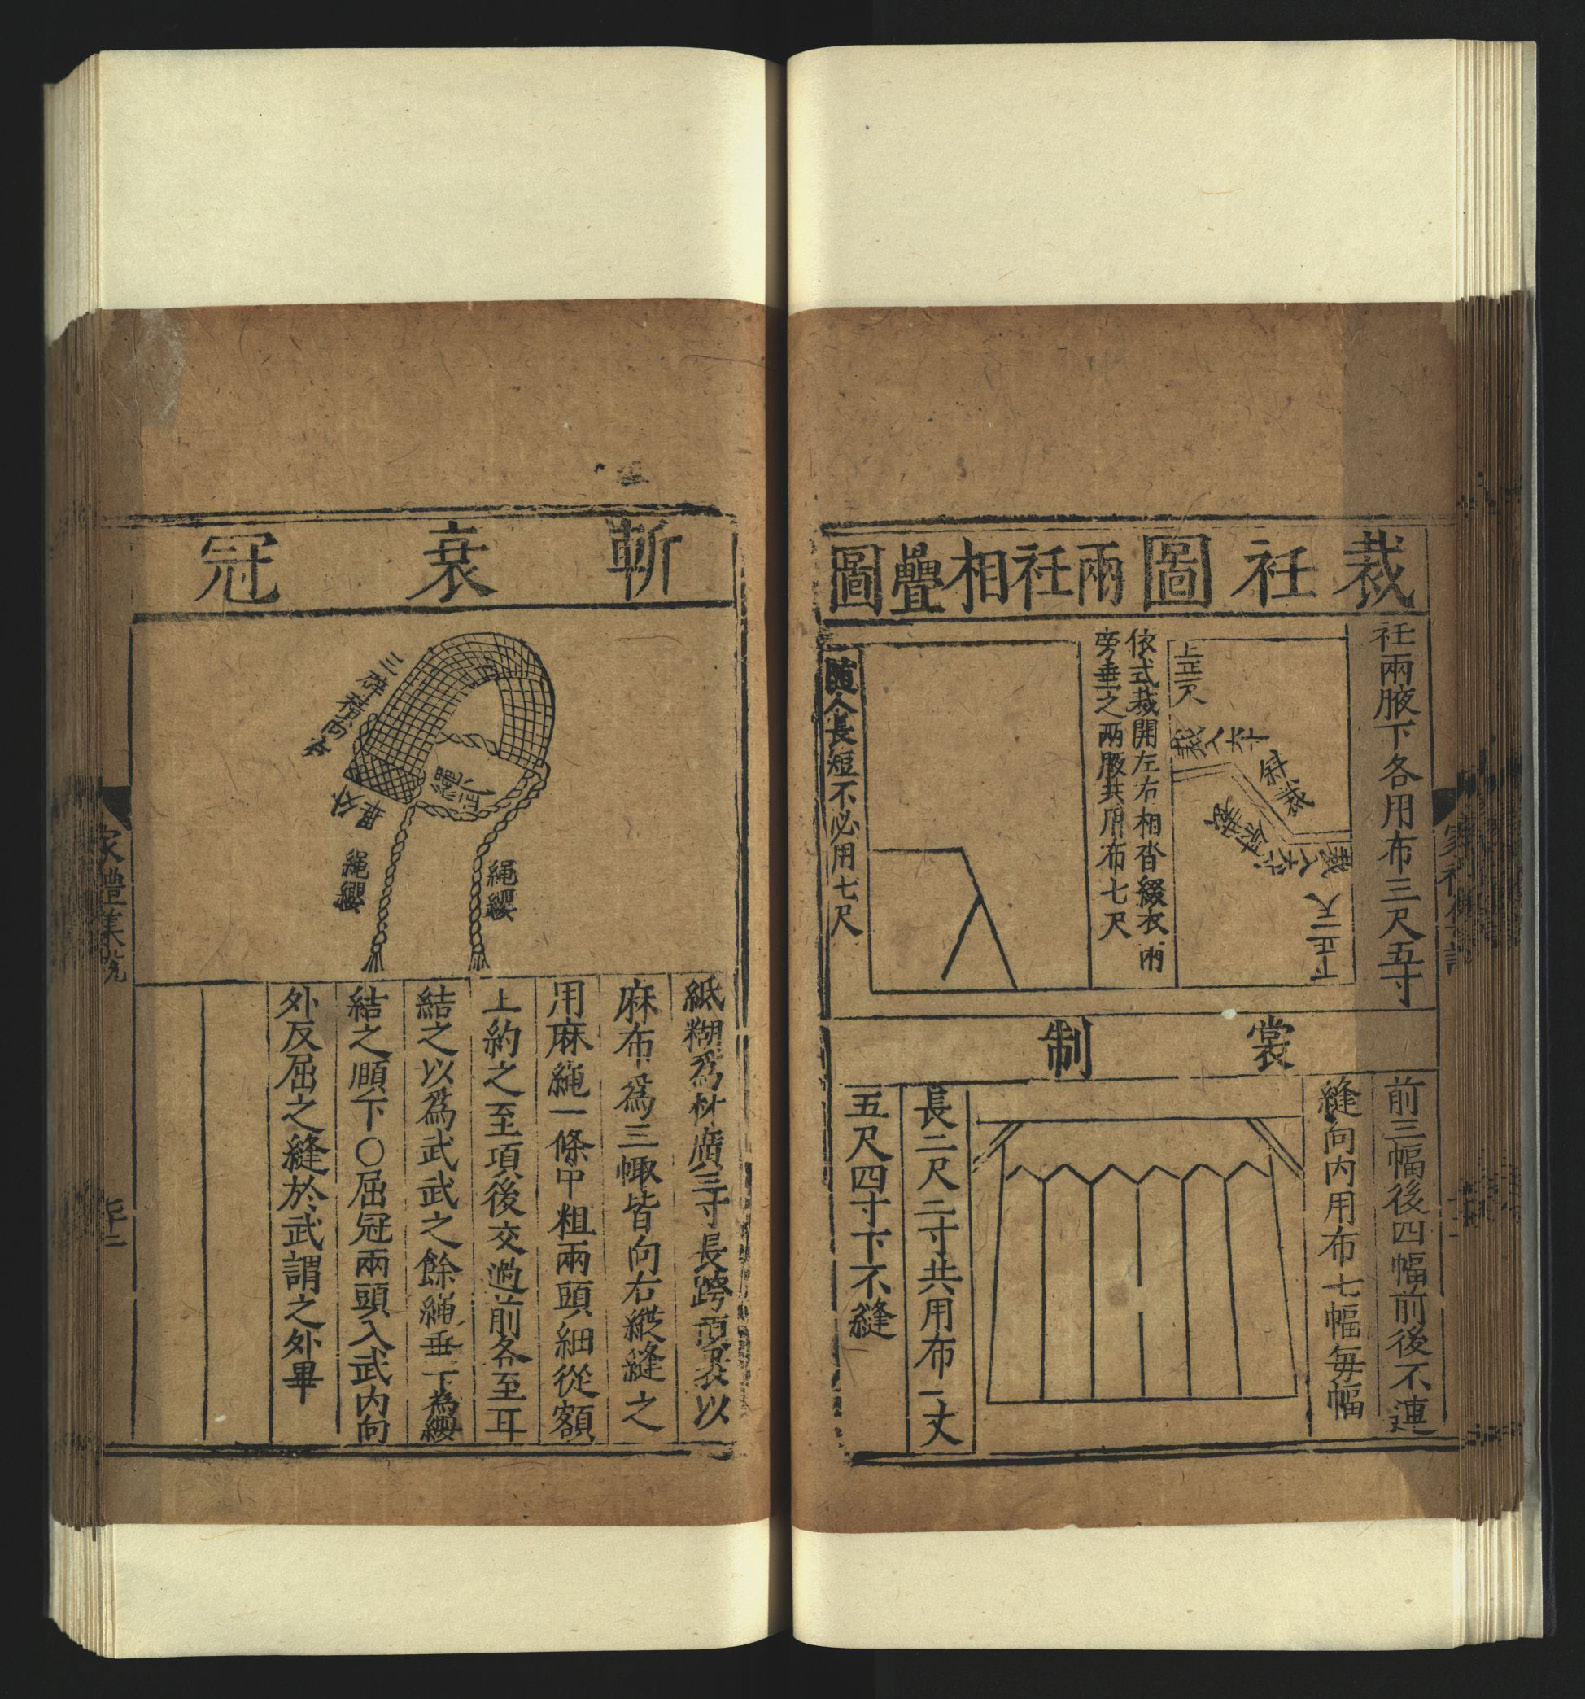 裁衽圖
兩衽相疊圖
衽兩腋下各用布三尺五寸
上正一尺
裁入六寸
斜裁
裁入六寸
下正一尺
依式裁開左右相沓綴衣兩
旁垂之兩腋共用布七尺
隨人長短不必用七尺
裳制
前三幅後四幅前後不連
縫向內用布七幅每幅
長二尺二寸共用布一丈
五尺四寸下不縫
斬衰冠
三辟積向右
武
繩
外畢
繩纓
繩纓
紙糊爲材廣三寸長跨頂裹以
麻布爲三㡇皆向右縱縫之
用麻繩一條中粗兩頭細從額
上約之至項後交過前各至耳
結之以爲武武之餘繩垂下為纓
結之頤下○屈冠兩頭入武內向
外反屈之縫於武謂之外畢
家禮集說